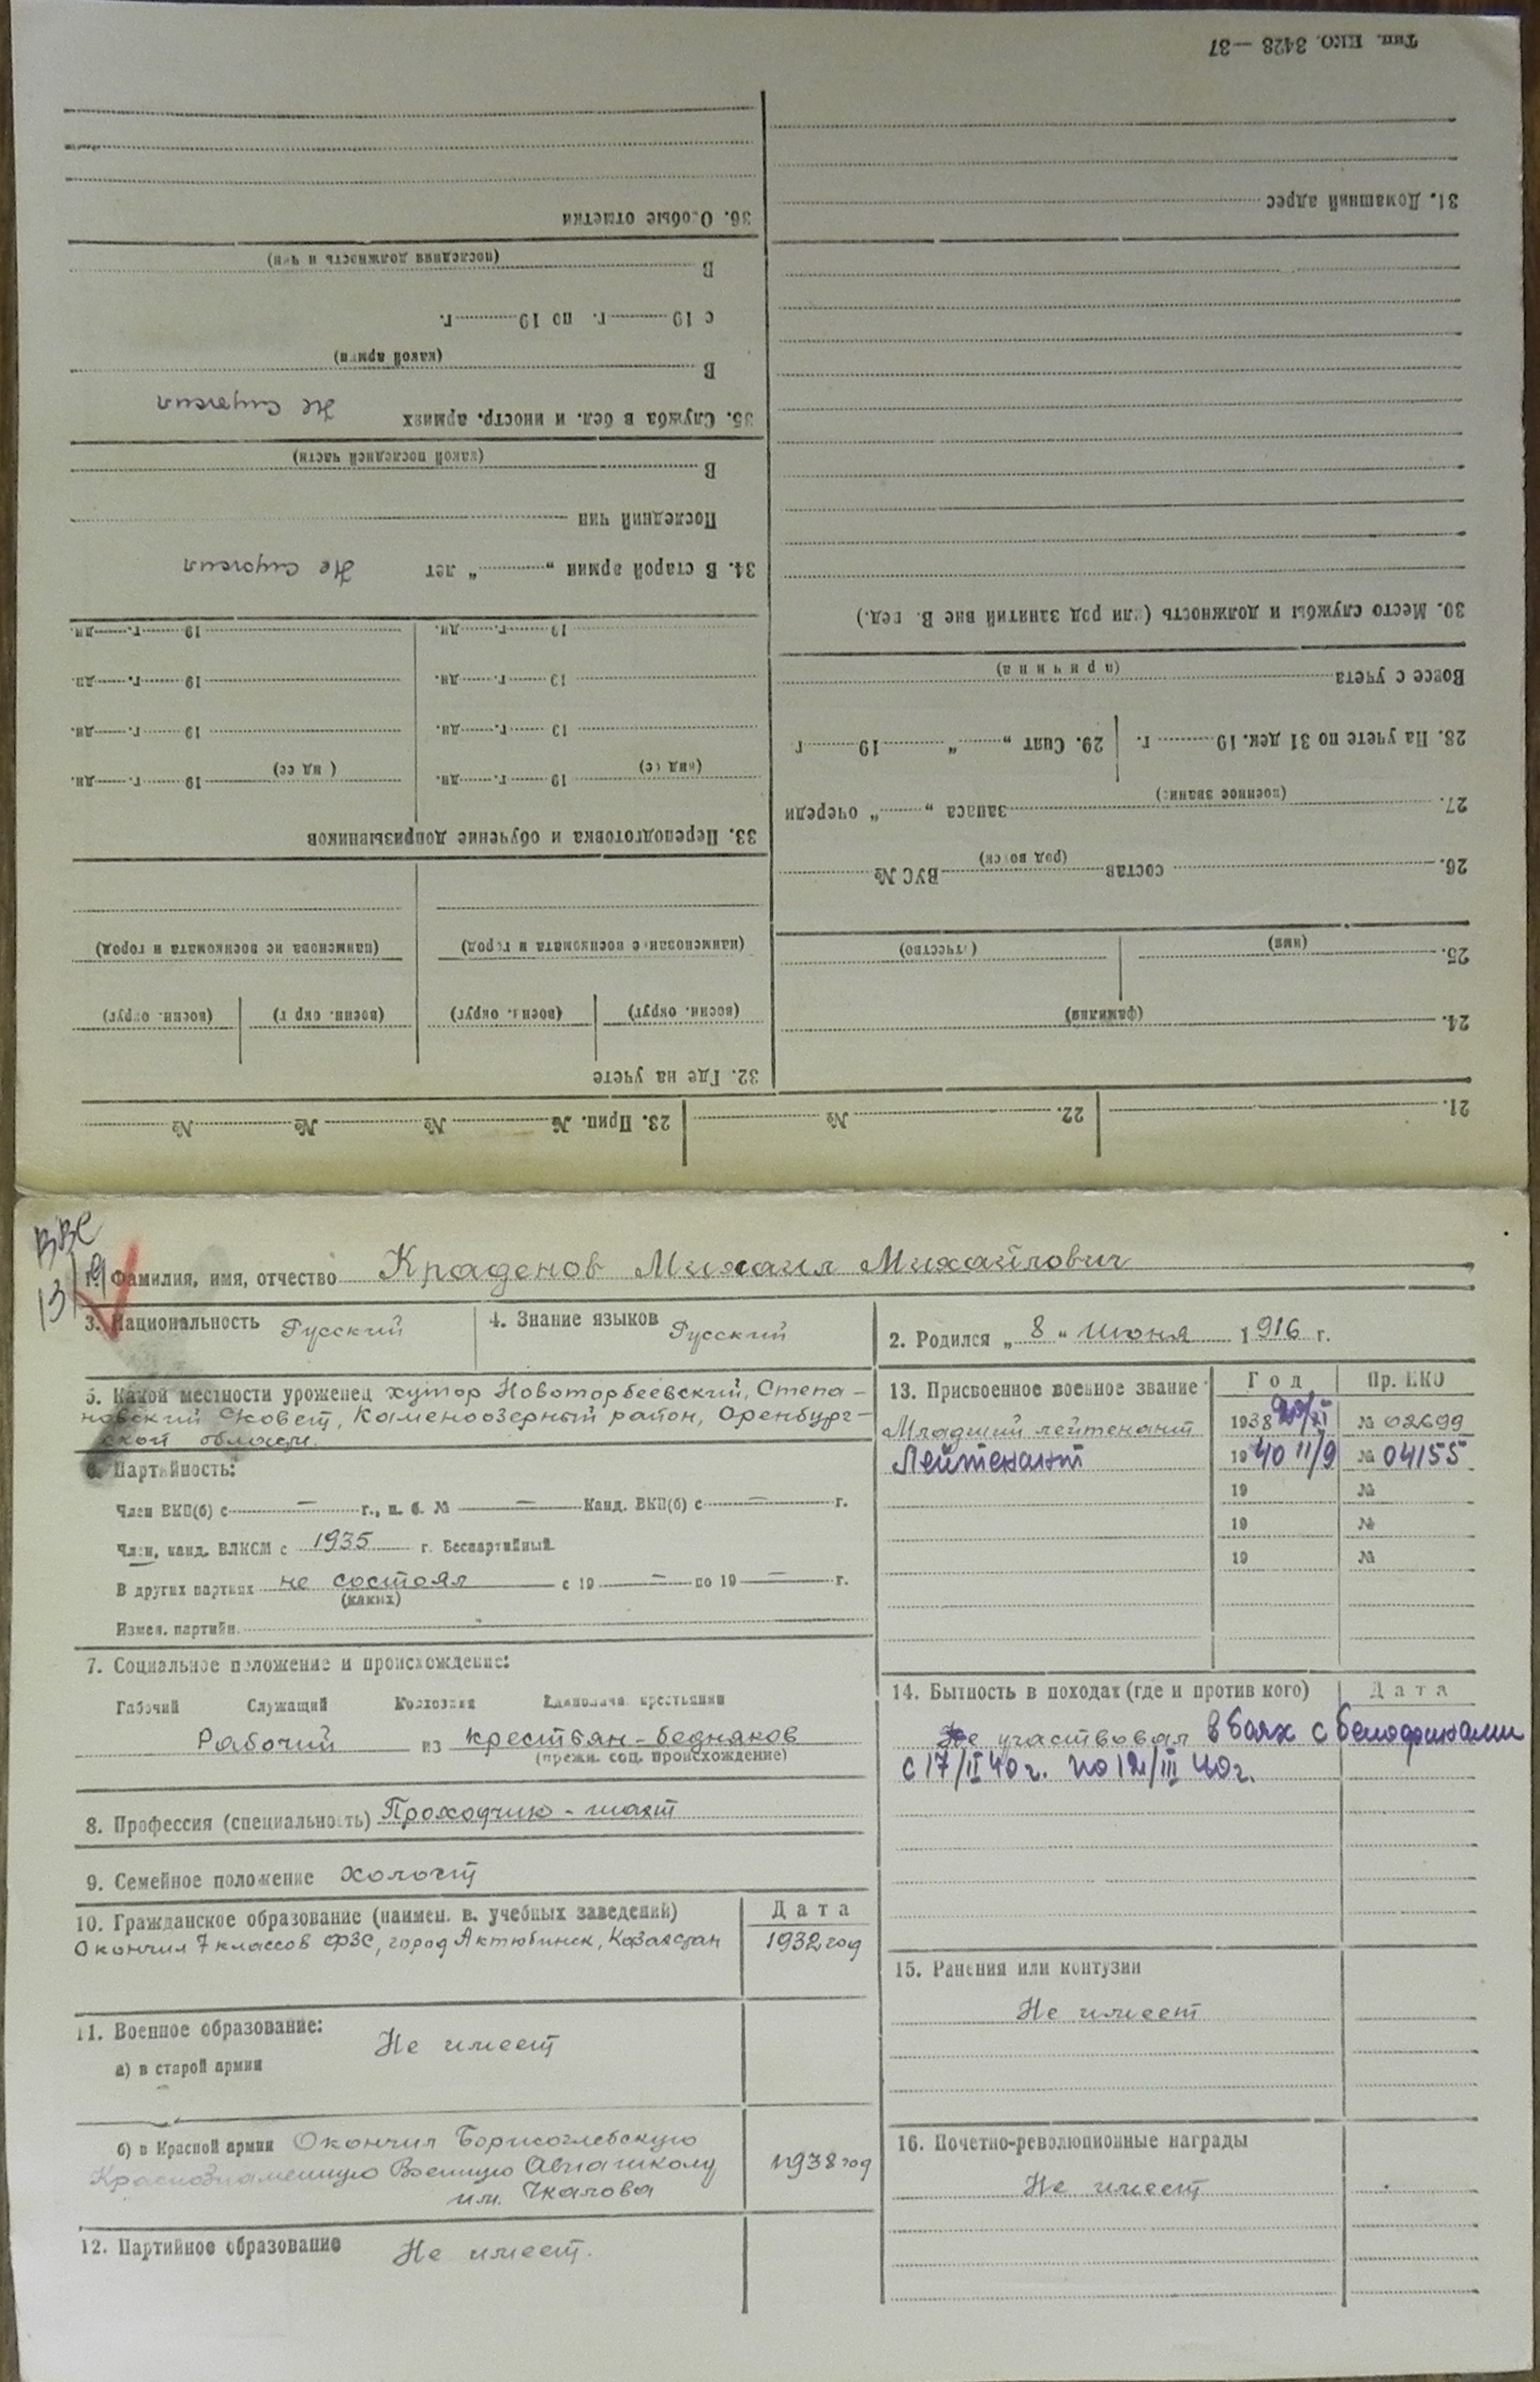 Тип. НКО. 3428 — 37
36. Особые отметки
31. Домашний адрес
В
(последняя должность и чин)
с 19 г. по 19 г.
В
(какой армии)
35. Служба в бел. и иностр. армиях Не служил
В
(какой последней части)
Последний чин
34. В старой армии „ “ лет Не служил
30. Место службы и должность (или род занятий вне В. вед.)
19 г. дн. 19 г. дн.
19 г. дн. 19 г. дн.
19 г. дн. 19 г. дн.
(вид сс) 19 г. дн. (вид сс) 19 г. дн.
33. Переподготовка и обучение допризывников
Вовсе с учета
(причина)
28. На учете по 31 дек. 19 г. 29. Снят „ “ 19 г
27. запаса „ “ очереди
(военное звание)
26. состав ВУС №
(род войск)
25.
(имя) (отчество)
24.
(фамилия)
(наименование военкомата и город) (наименование военкомата и город)
(воен. округ) (воен. округ) (воен. округ) (воен. округ)
32. Где на учете
21. 22. № 23. Прип. № № № №
ВВС
13/19
1. Фамилия, имя, отчество Краденов Михаил Михайлович
3. Национальность Русский
4. Знание языков Русский
2. Родился „ 8 “ июня 1916 г.
5. Какой местности уроженец хутор Новоторбеевский, Степа-
новский Совет, Каменоозерный район, Оренбург-
ской области.
6. Партийность:
Член ВКП(б) с — г., п. б. № — Канд. ВКП(б) с — г.
Член, канд. ВЛКСМ с 1935 г. Беспартийный
В других партиях не состоял с 19 — по 19 — г.
(каких)
Измен. партийн.
7. Социальное положение и происхождение:
Рабочий Служащий Колхозник Единолич. крестьянин
Рабочий из крестьян-бедняков
(прежн. соц. происхождение)
8. Профессия (специальность) Проходчик - шахт
9. Семейное положение холост
10. Гражданское образование (наимен. в. учебных заведений) Дата
Окончил 7 классов ФЗС, город Актюбинск, Казахстан 1932 год
11. Военное образование:
а) в старой армии Не имеет
б) в Красной армии Окончил Борисоглебскую
Краснознаменную Военную Авиашколу 1938 год
им. Чкалова
12. Партийное образование Не имеет.
13. Присвоенное военное звание Год Пр. НКО
Младший лейтенант 1938 № 02699
Лейтенант 1940 11/9 № 04155
19 №
19 №
19 №
14. Бытность в походах (где и против кого) Дата
Не участвовал в боях с белофинами
с 17/II 40 г. по 12/III 40 г.
15. Ранения или контузии
Не имеет
16. Почетно-революционные награды
Не имеет